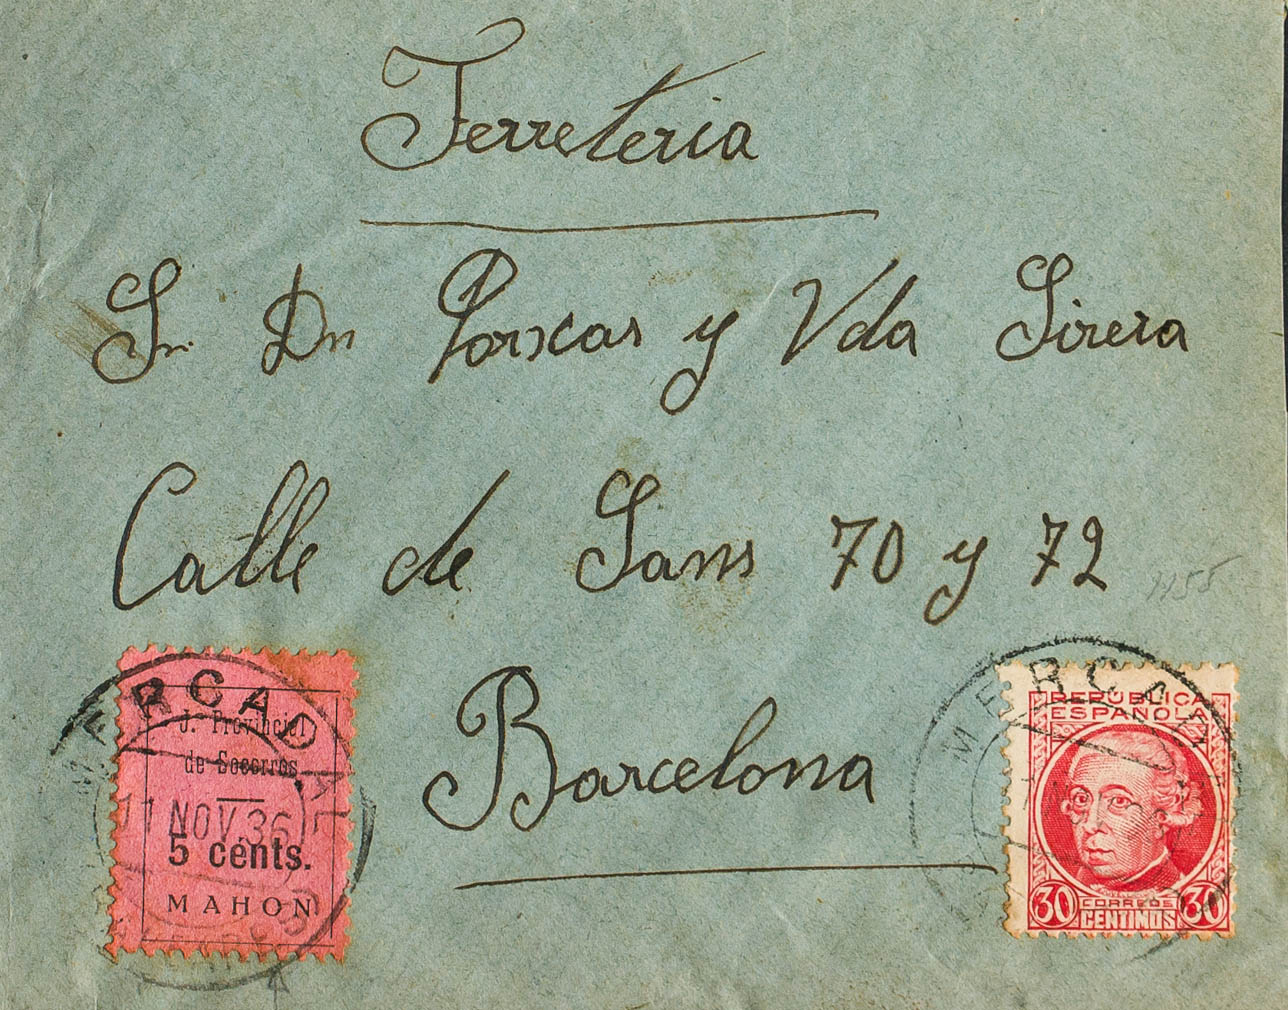 Ferreteria
Sr. Dn Porxcas y Vda Sirera
Calle de Sans 70 y 72
1155
Barcelona
MERCADAL
J. Provincial
de Socorros
11 NOV 36
5 cénts.
MAHON
MERCADAL
REPÚBLICA
ESPAÑOLA
30 CORREOS 30
CENTIMOS